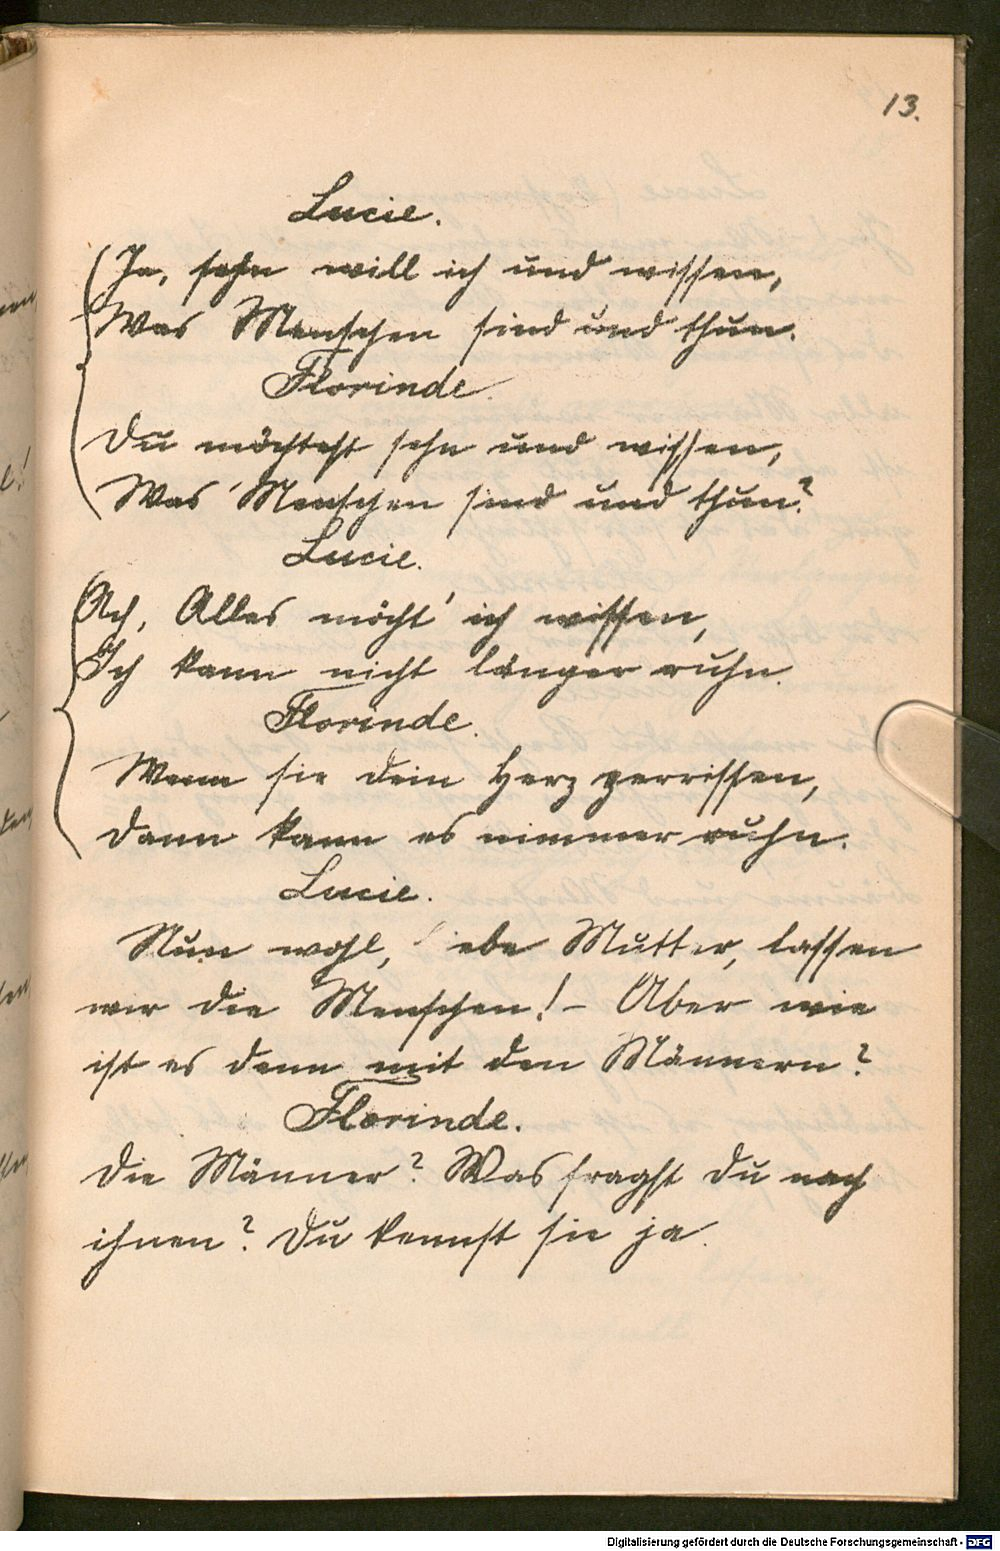 13.
Lucie.
Ja, sehn will ich und wissen,
Was Menschen sind und thun.
Florinde.
Du möchtest sehn und wissen,
Was Menschen sind und thun?
Lucie.
Ach, Alles möcht' ich wissen,
Ich kann nicht länger ruhn.
Florinde.
Wenn sie dein Herz zerrissen,
Dann kann es nimmer ruhn.
Lucie.
Nun wohl, liebe Mutter, lassen
wir die Menschen! – Aber wie
ist es denn mit den Männern?
Florinde.
Die Männer? Was fragst Du nach
ihnen? Du kennst sie ja.
Digitalisierung gefördert durch die Deutsche Forschungsgemeinschaft - DFG